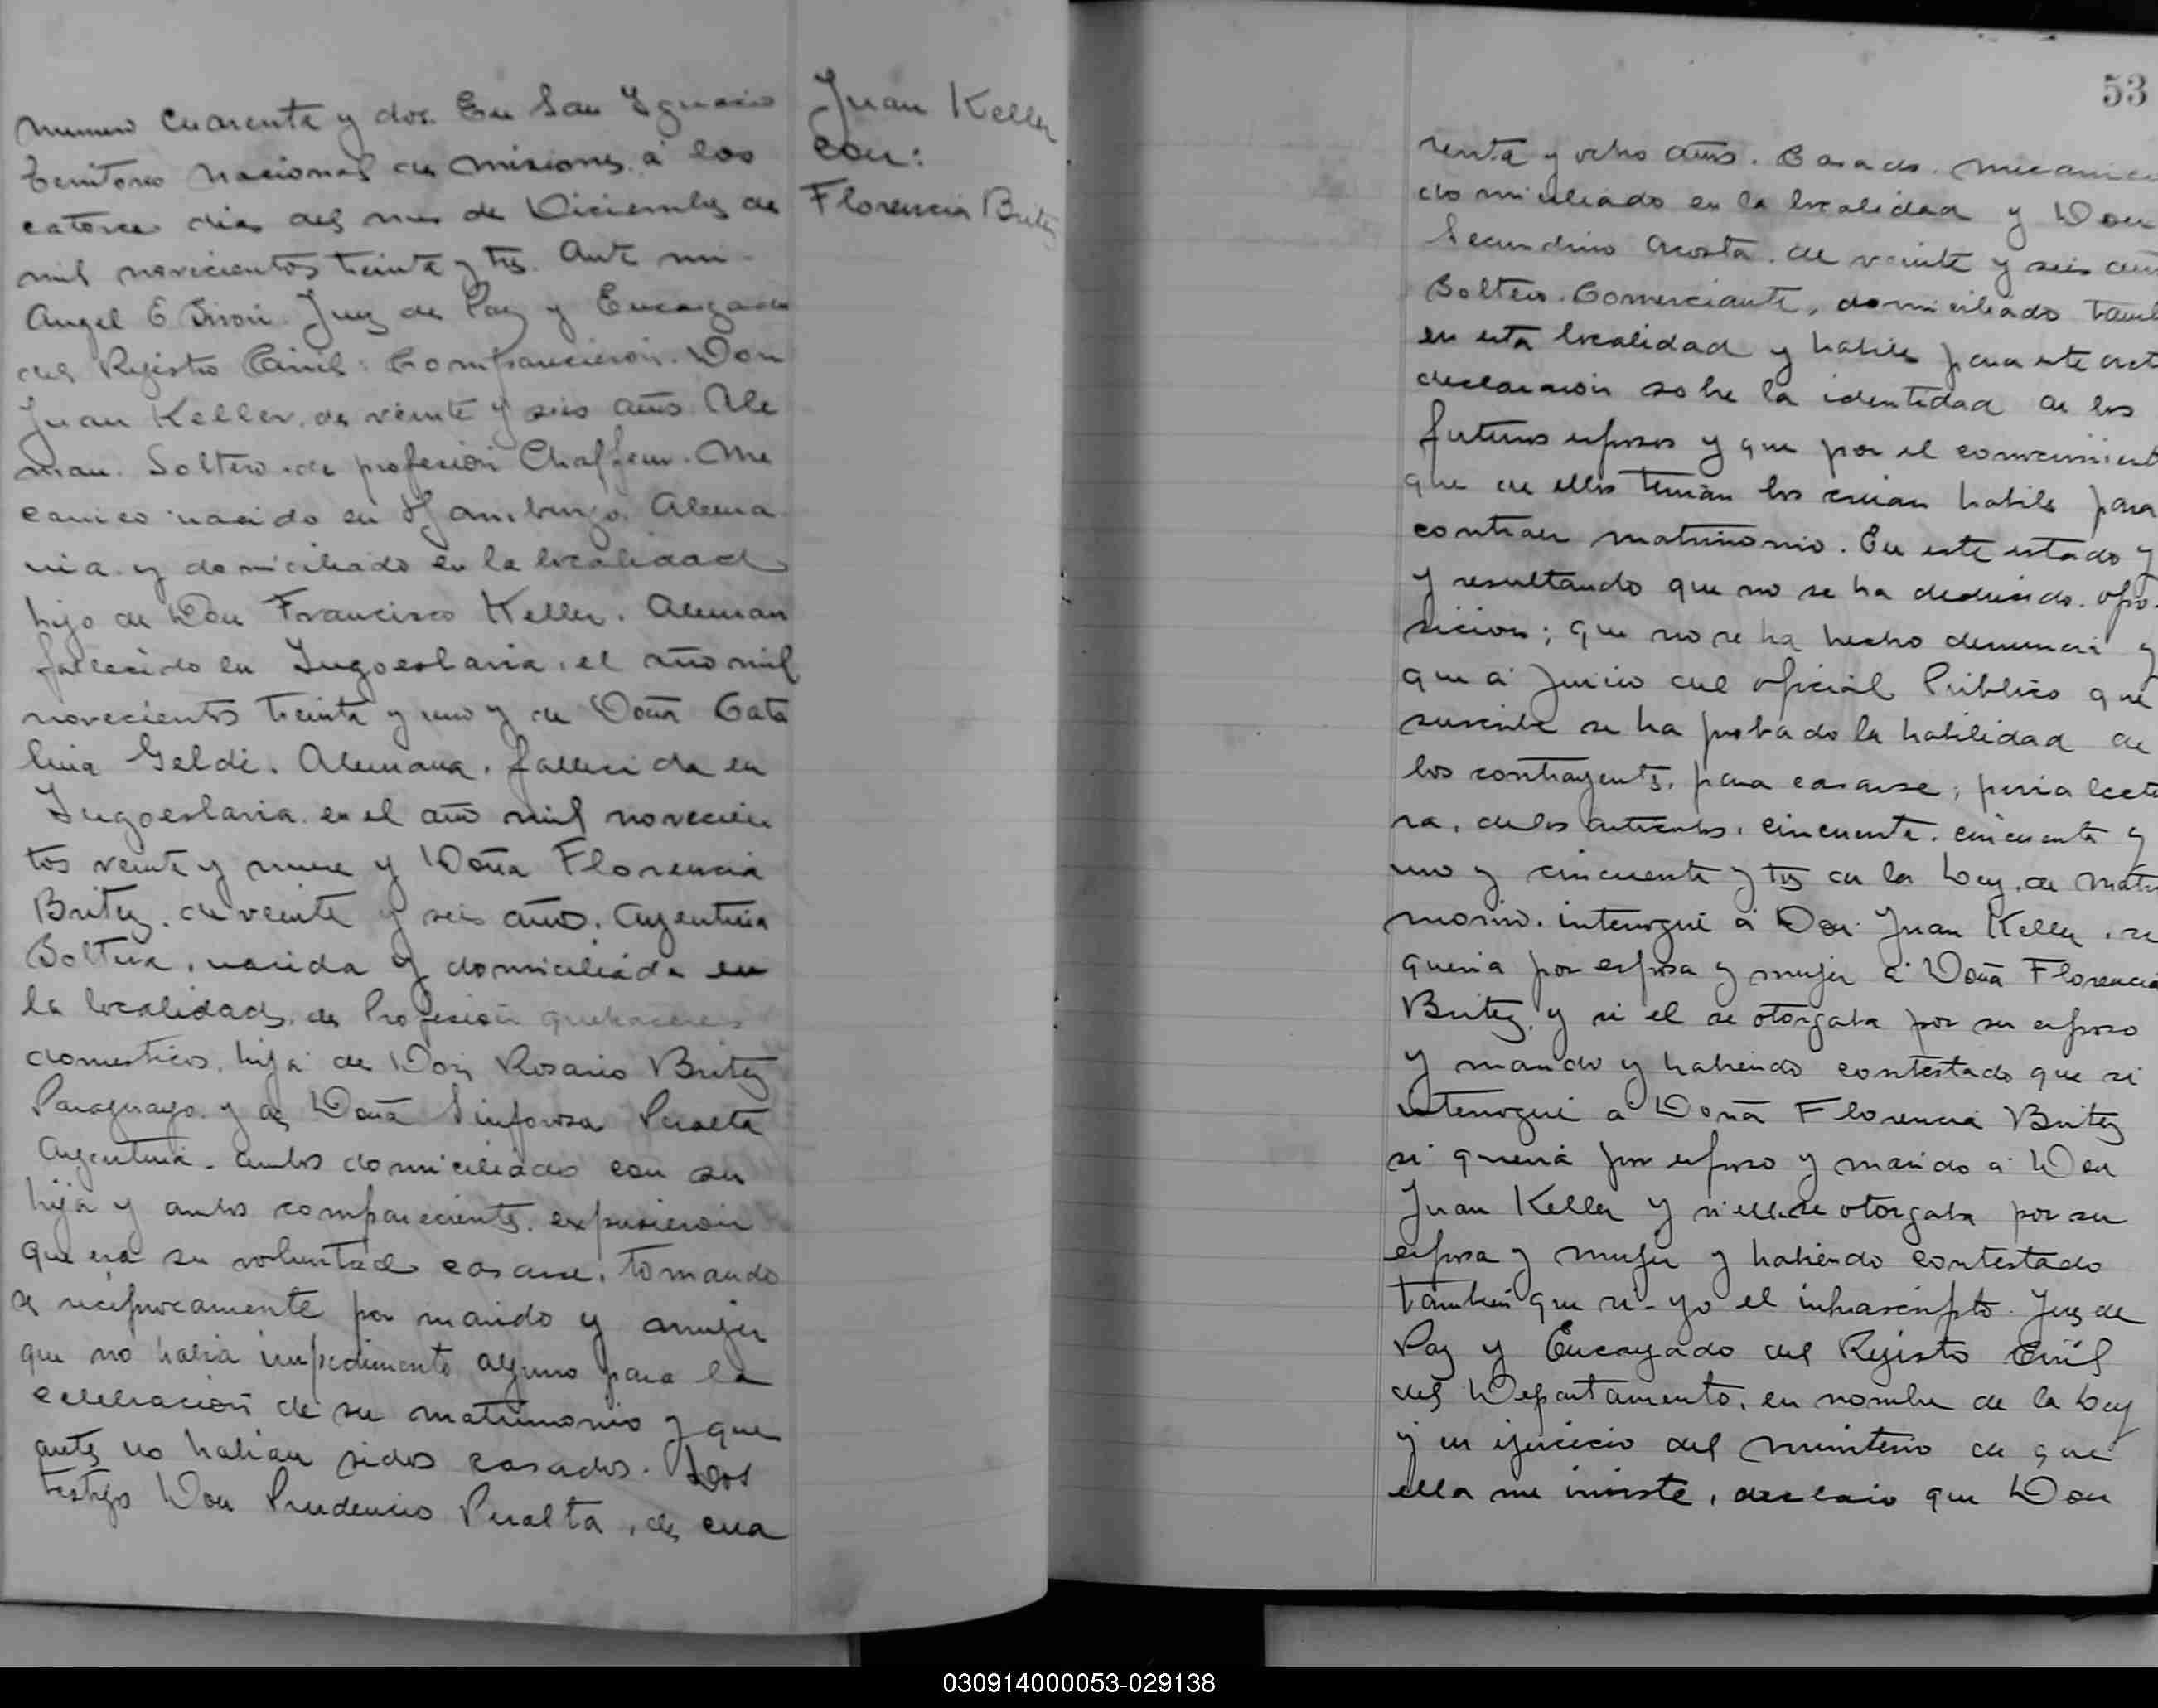 numero Cuarenta y dos. En San Ygnacio
territorio Nacional de Misiones á los
catorce dias del mes de Diciembre de
mil novecientos treinta y tres. Ante mi
Angel E Juez de Paz y Encargado
del Registro Civil: Comparecieron. Don
Juan Keller, de veinte y seis años. Ale
man. Soltero. de profesion Chaffeur. Me
canico nacido en Hamburgo. Alema
nia. y domiciliado en la localidad
hijo de Don Francisco Keller. Aleman
fallecido en Yugoeslavia. el año mil
novecientos treinta y uno y de Doña Cata
lina Geldi. Alemana. fallecida en
Yugoeslavia. en el año mil novecien
tos veinte y nueve y Doña Florencia
Britez. de veinte y seis años. Argentina
Soltera. nacida y domiciliada en
la localidad. de Profesion quehaceres
domesticos. hija de Don Rosario Britez
Paraguayo. y de Doña Sinforosa Peralta
Argentina. ambos domiciliado con su
hija y ambos comparecientes. expusieron
que era su voluntad casarse. tomando
se reciprocamente por marido y mujer
que no habia impedimento alguno para la
celebracion de su matrimonio y que
antes no habian sidos casados. Los
testigo Don Prudencio Peralta, de cua
Juan Keller
con:
Florencia Britez
53
renta y ocho años. Casado. mecanico
domiciliado en la localidad y Don
Secundino Acosta. de veinte y seis años
Soltero. Comerciante, domiciliado tamb
en esta localidad y habiles para este act
declaracion sobre la identidad de los
futuros esposos y que por el conocimient
que de ellos tenian los creian habiles para
contraer matrimonio. En este estado y
y resultando que no se ha deducido. opo-
sicion; que no se ha hecho denuncia y
que á juicio del oficial Publico que
suscribe se ha probado la habilidad de
los contrayentes. para casarse; previa lectu
ra. de los articulos. cincuenta. cincuenta y
uno y cincuenta y tres de la Ley. de matri
monio. interrogué á Don Juan Keller. si
queria por esposa y mujer á Doña Florencia
Britez. y si el se otorgaba por su esposo
y marido y habiendo contestado que si
interrogué a Doña Florencia Britez
si queria por esposo y marido a Don
Juan Keller y si ella se otorgaba por su
esposa y mujer y habiendo contestado
tambien que si. yo el infrascripto. Juez de
Paz y Encargado del Registro Civil
del Departamento. en nombre de la Ley
y en ejercicio del ministerio de que
ella me inviste, declaro que Don
030914000053-029138